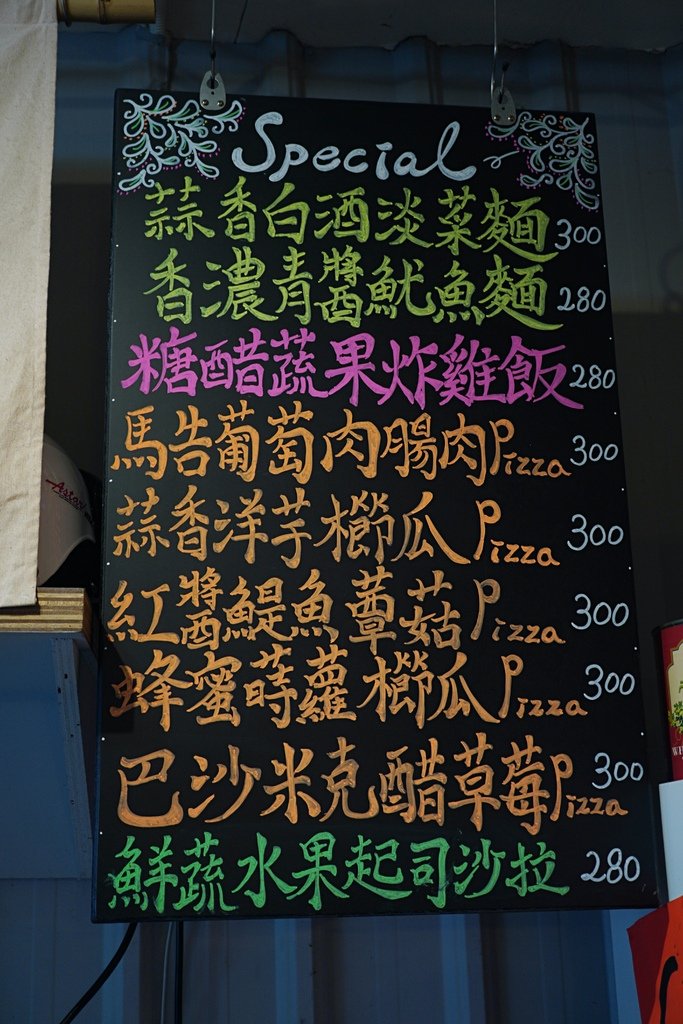 Special
蒜香白酒淡菜麵 300
香濃青醬魷魚麵 280
糖醋蔬果炸雞飯 280
馬告葡萄肉腸肉Pizza 300
蒜香洋芋櫛瓜Pizza 300
紅醬鯷魚蕈菇Pizza 300
蜂蜜蒔蘿櫛瓜Pizza 300
巴沙米克醋草莓Pizza 300
鮮蔬水果起司沙拉 280